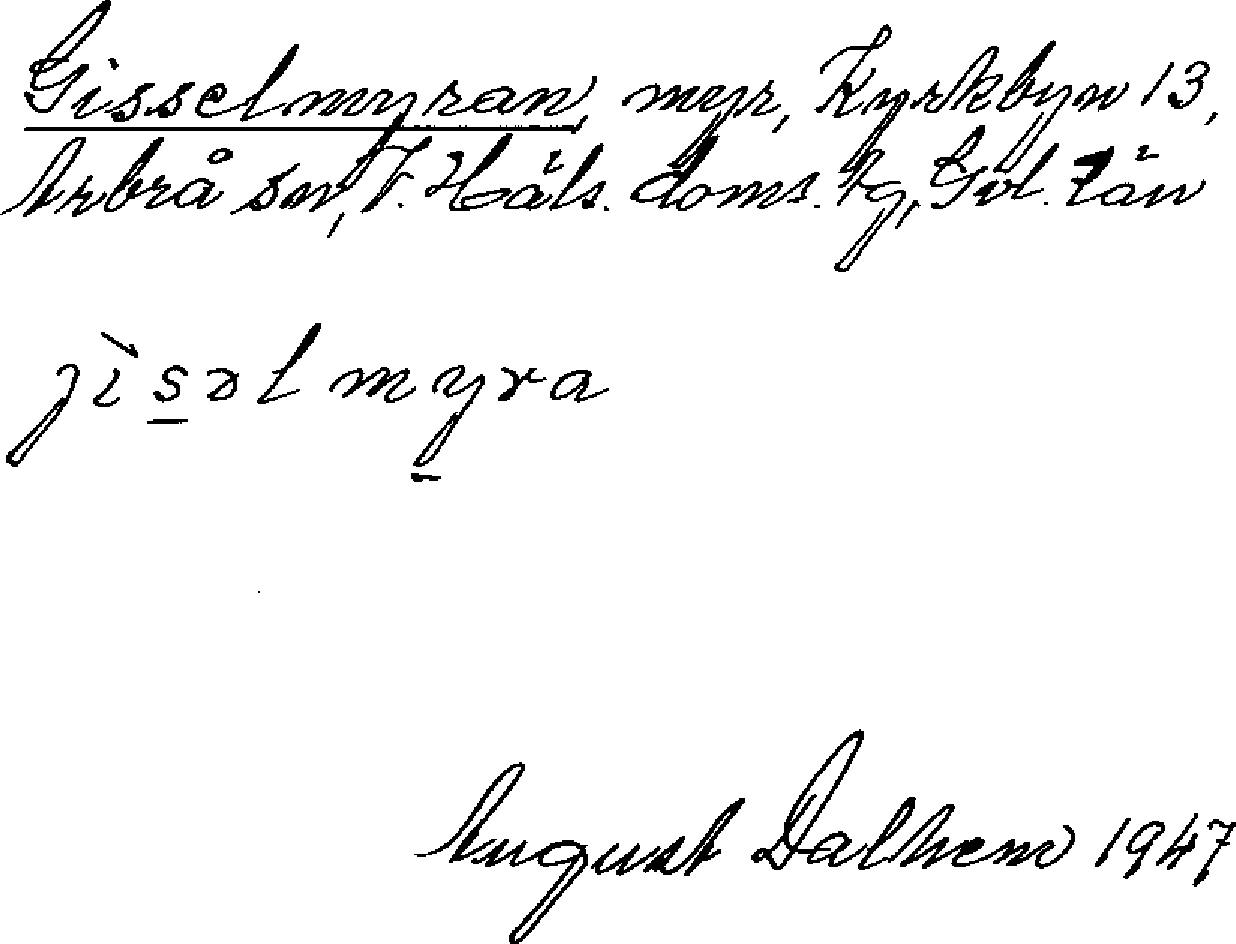 Gisselmyran, myr, Kyrkbyn 13,
Arbrå sn, V. Häls. doms. tg, Gvl. län
jìsəlmyra
August Dalhem 1947